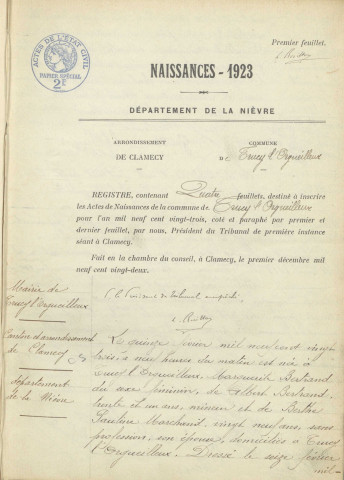 Premier feuillet.
ACTES DE L'ÉTAT CIVIL
PAPIER SPÉCIAL
2F
NAISSANCES - 1923
DÉPARTEMENT DE LA NIÈVRE
ARRONDISSEMENT
DE CLAMECY
COMMUNE
de Trucy l'Orgueilleux
REGISTRE, contenant Quatre feuillets, destiné à inscrire
les Actes de Naissances de la commune de Trucy l'Orgueilleux
pour l'an mil neuf cent vingt-trois, coté et paraphé par premier et
dernier feuillet, par nous, Président du Tribunal de première instance
séant à Clamecy.
Fait en la chambre du conseil, à Clamecy, le premier décembre mil
neuf cent vingt-deux.
Mairie de
Trucy l'Orgueilleux
Canton et arrondissement
de Clamecy
département
de la Nièvre
Le quinze février mil neuf cent vingt
trois à heures du matin est née à
Trucy l'Orgueilleux, Marguerite Bertrand
du sexe féminin, de Albert Bertrand,
trente et un ans, mineur et de Berthe
Pauline Marchand, vingt neuf ans, sans
profession, son épouse, domiciliés à Trucy
l'Orgueilleux. Dressé le seize février
mil-